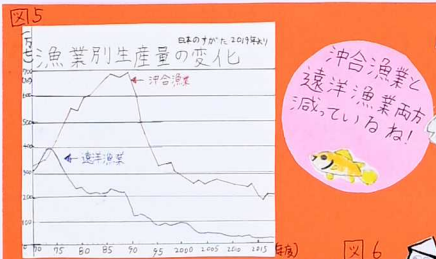 図5
日本のすがた 2019年より
(万t)
漁業別生産量の変化
700
沖合漁業
600
500
400
遠洋漁業
300
200
100
0
70 75 80 85 90 95 2000 2005 2010 2015 (年度)
沖合漁業と
遠洋漁業両方
減っているね!
図6